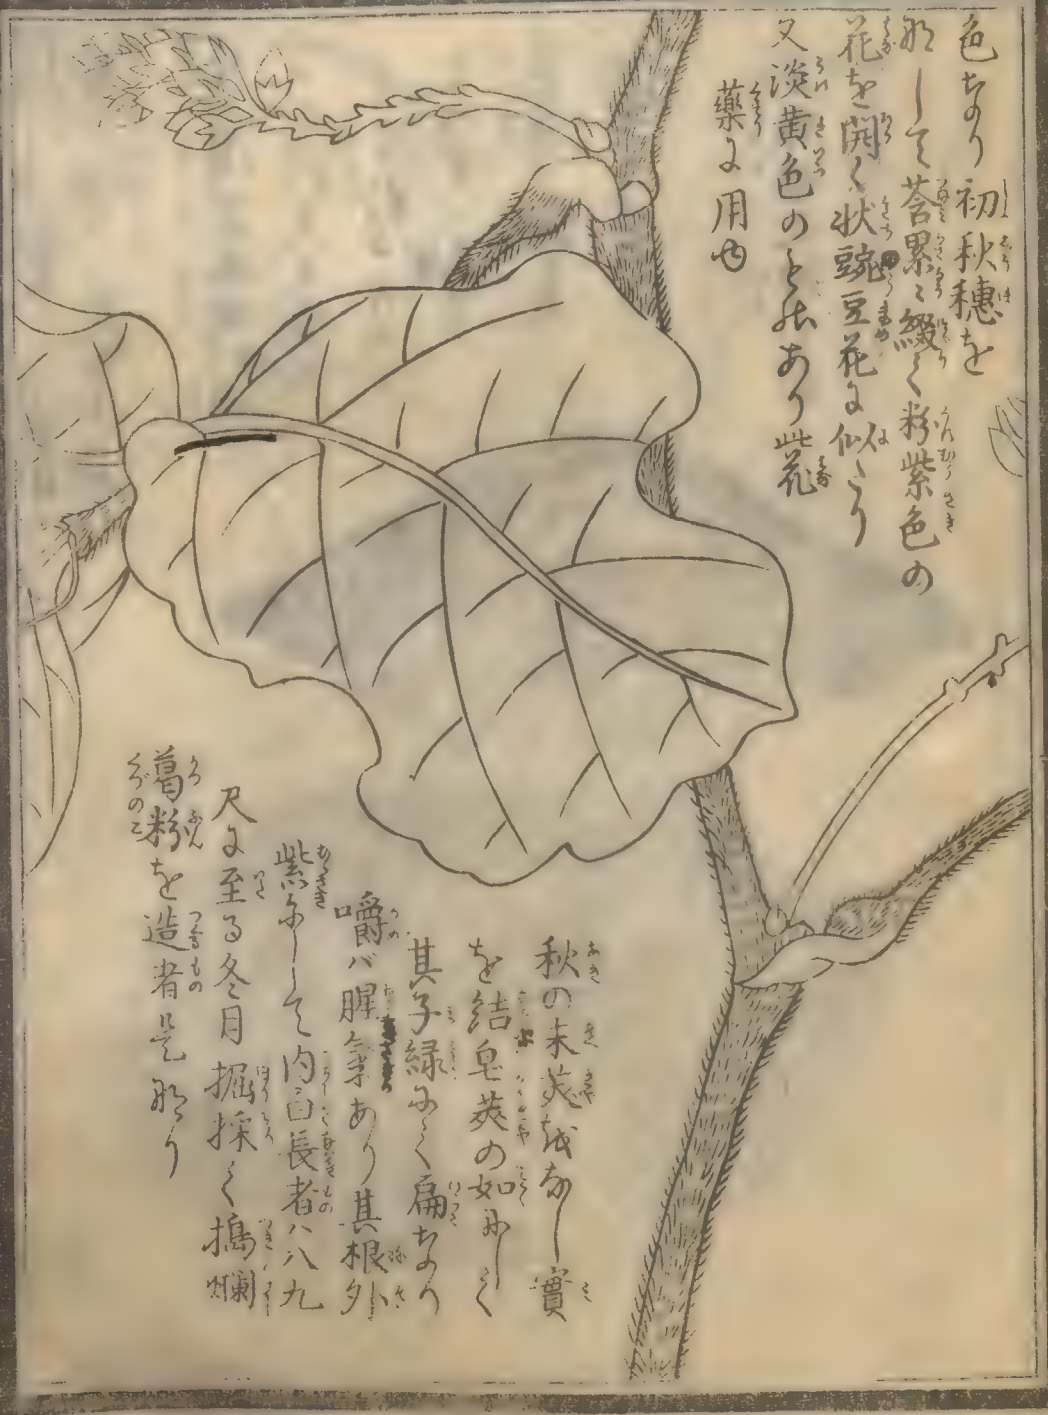 色なり初秋穂を
那して莟累〻綴て粉紫色の
花を開く状豌豆花に似たり
又淡黄色のも然あり此花
薬に用ゆ
秋の末莢越なし實
を結皂莢の如尓して
其子緑尓て扁なり
嚼バ腥氣あり其根外
紫尓して内白長者ハ八九
尺に至る冬月掘採て搗爛
葛粉を造者是那り